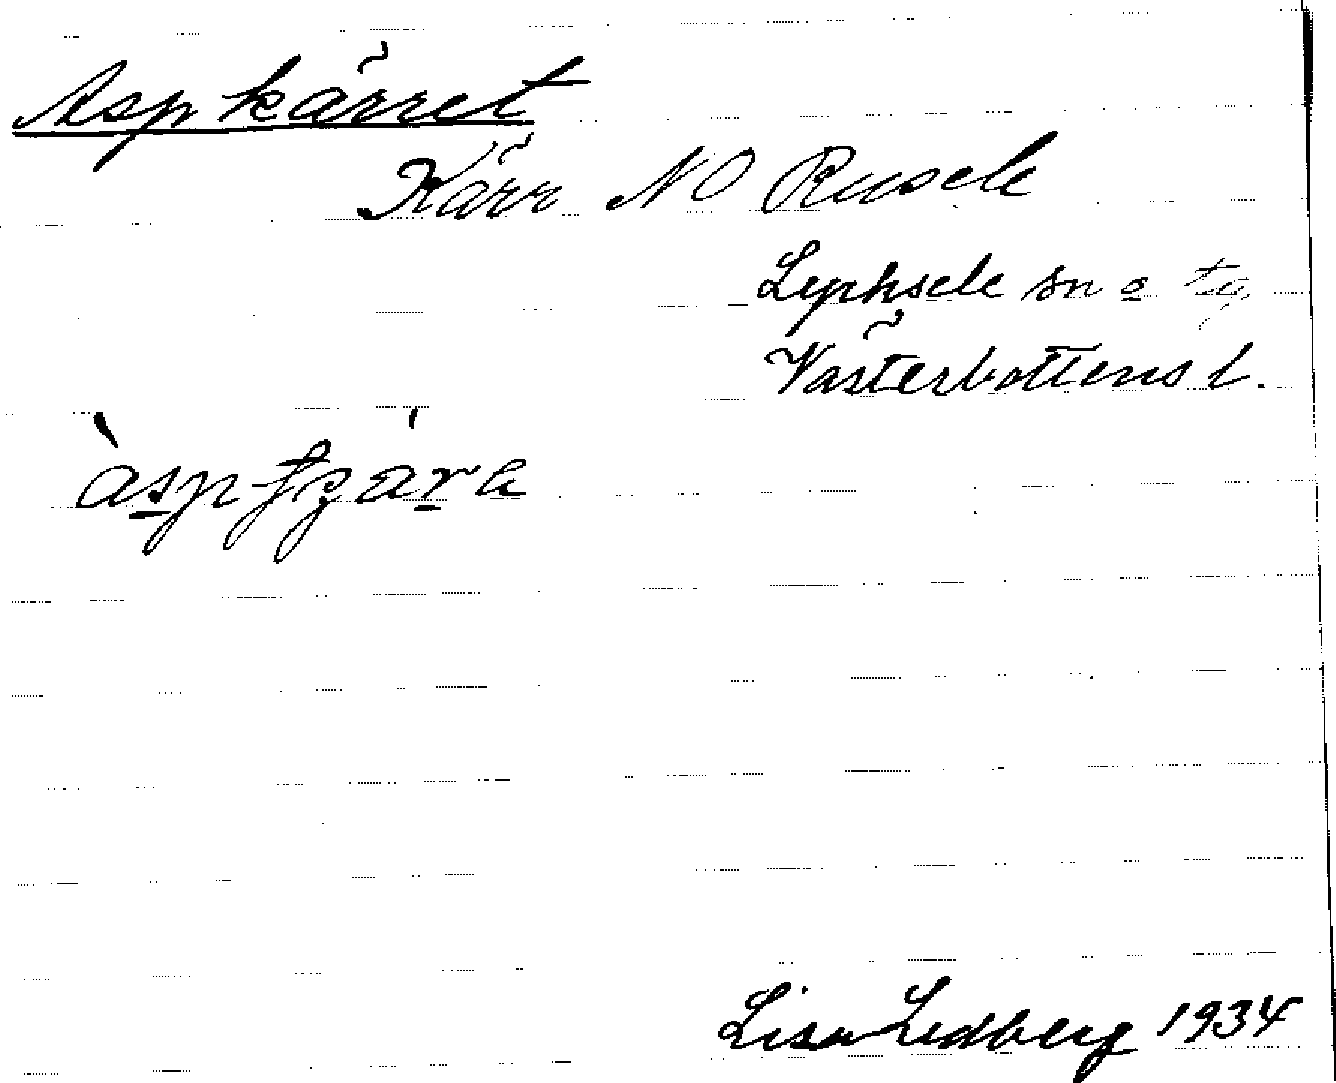 Aspkärret
Kärr NO Rusele
Lycksele sn o tg
Västerbottens l.
Lisa Lidberg 1934